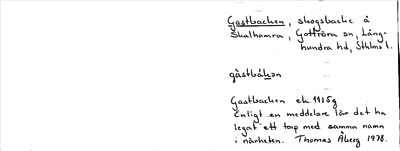 Gastbacken, skogsbacke å
Skalhamra, Gottröra sn, Lång-
hundra hd, Sthlms l.
gàstbákən
Gastbacken ek. 11I5g
Enligt en meddelare lär det ha
legat ett torp med samma namn
i närheten. Thomas Åberg 1978.